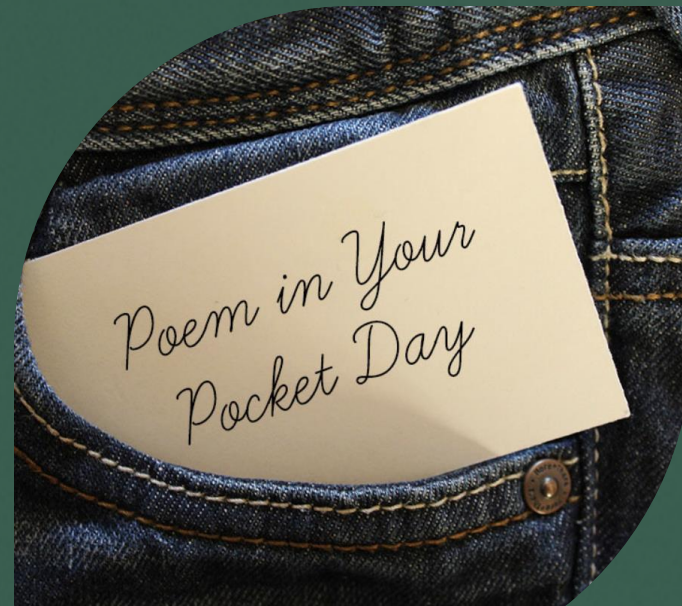 Poem in Your
Pocket Day